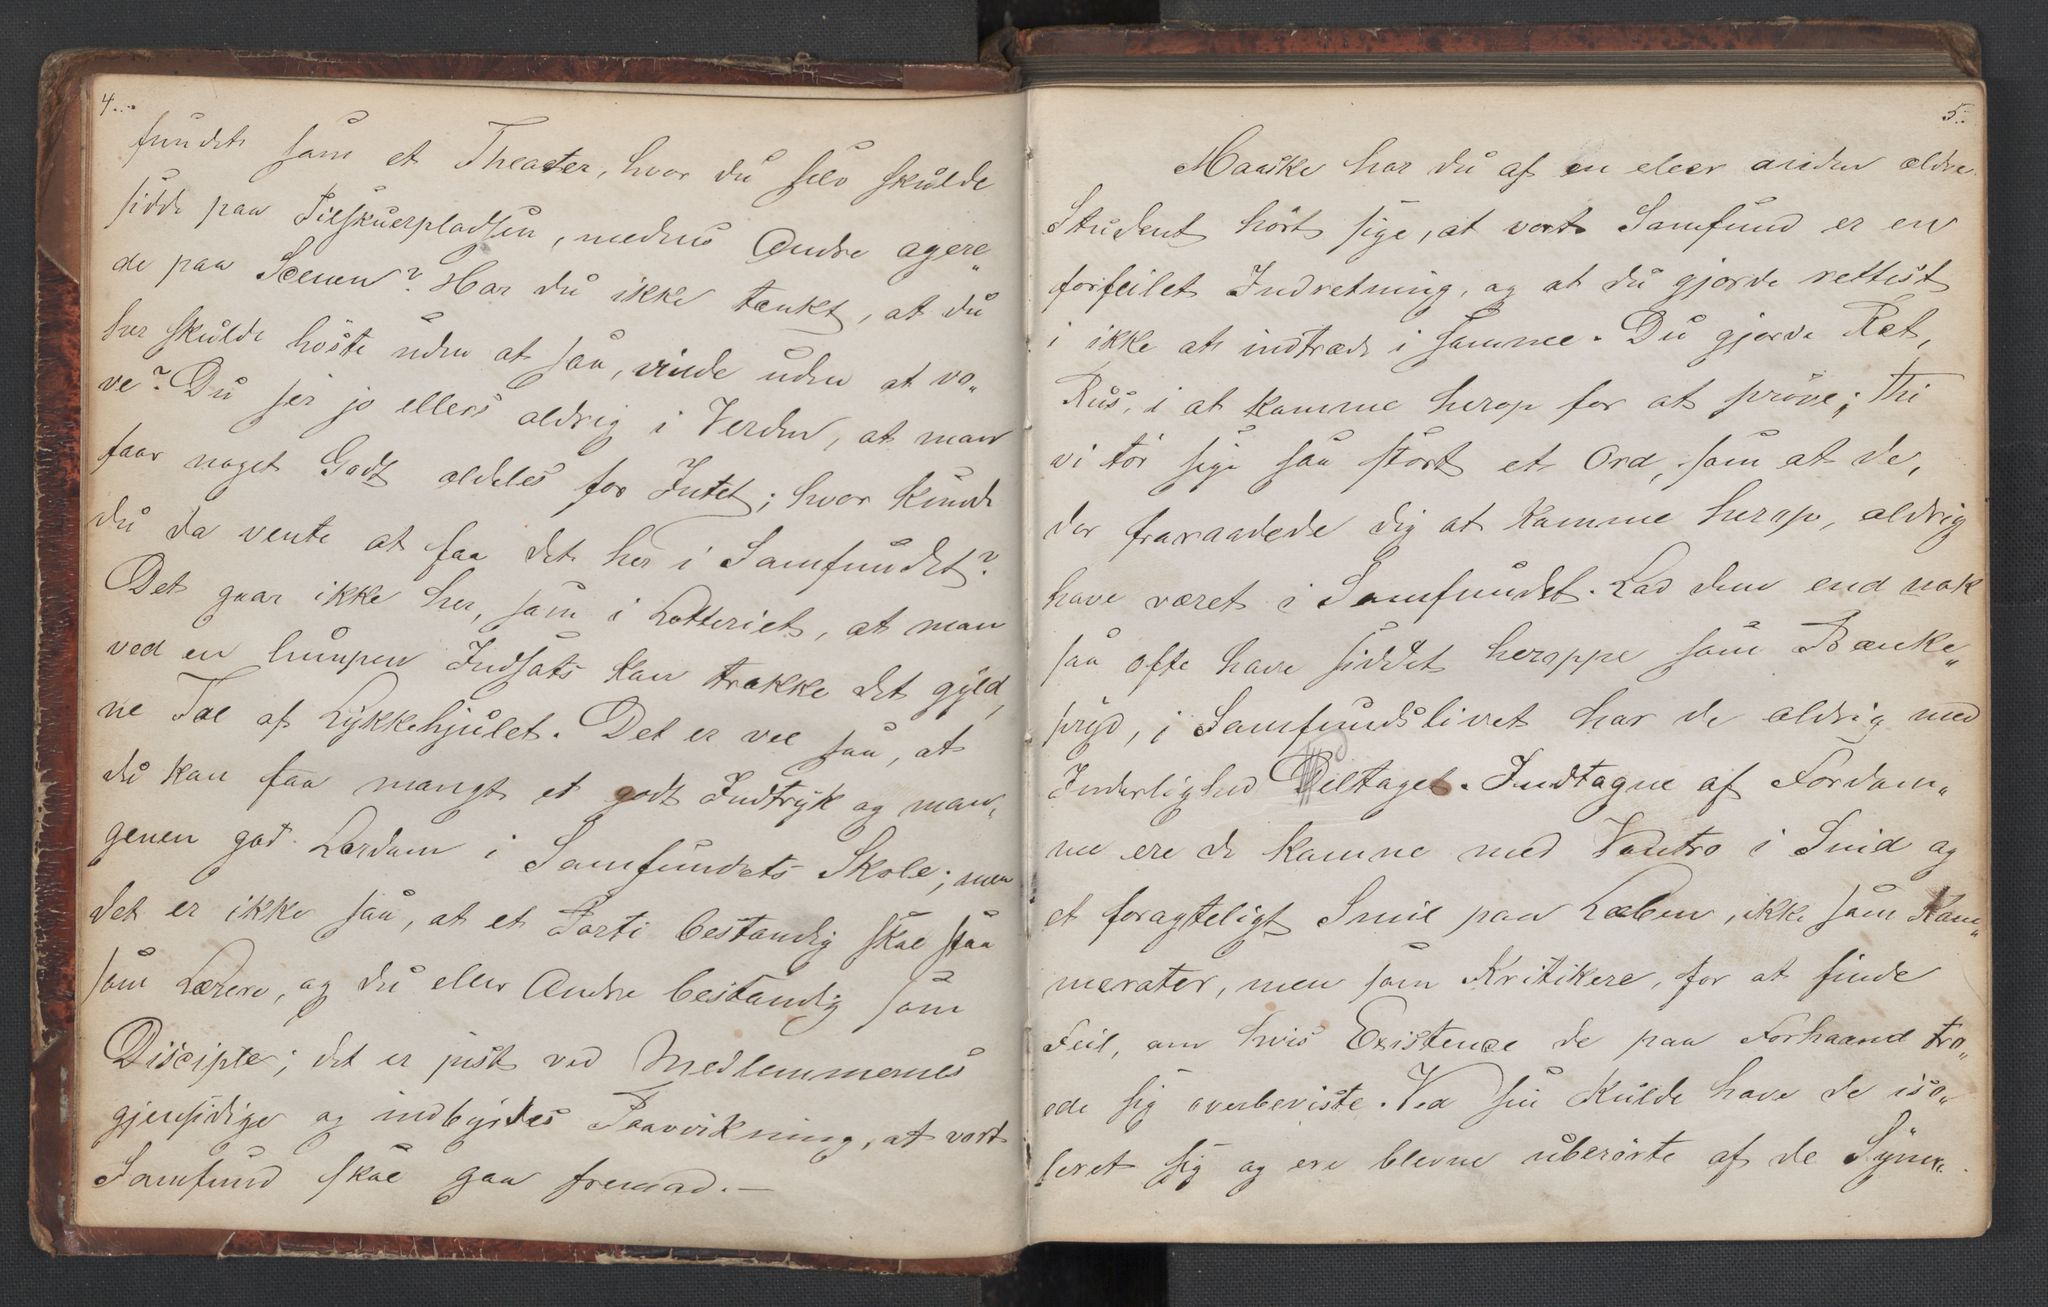 4.
fundet som et Theater, hvor du selv skulde
sidde paa Tilskuerpladsen, medens Andre agere„
de paa Scenen? Har du ikke tænkt, at du
her skulde höste uden at saa, vinde uden at vo„
ve? Du ser jo ellers aldrig i Verden, at man
faar noget Godt aldeles for Intet; hvor kunde
du da vente at faa det her i Samfundet?
Det gaar ikke her, som i Lotteriet, at man
ved en lumpen Indsats kan trække det gyld„
ne Tal af Lykkehjulet. Det er vel saa, at
du kan faa mangt et godt Indtryk og man„
genen god Lærdom i Samfundets Skole; men
det er ikke saa, at et Parti bestandig skal staa
som Lærere, og du eller Andre bestandig som
Disciple; det er just ved Medlemmernes
gjensidige og indbyrdes Paavirkning, at vort
Samfund skal gaa fremad. —
5.
Maaske har du af en eller anden ældre
Student hört sige, at vort Samfund er en
forfeilet Indretning, og at du gjorde rettest
i ikke at indtræde i samme. Du gjorde Ret,
Rus, i at komme herop for at pröve; Thi
vi tör sige saa stort et Ord, som at de,
der fraraadede dig at komme herop, aldrig
have været i Samfundet. Lad dem end nok
saa ofte have siddet heroppe som Bænke„
pryd, i Samfundslivet har de aldrig med
Inderlighed Deltaget. Indtagne af Fordom„
me ere de komne med Vantro i Sind og
et foragteligt Smil paa Læben, ikke som Kam„
merater, men som Kritikere, for at finde
Feil, om hvis Existence de paa Forhaand tro„
ede sig overbeviste. Ved sin Kulde have de iso„
leret sig og ere blevne uberörte af de